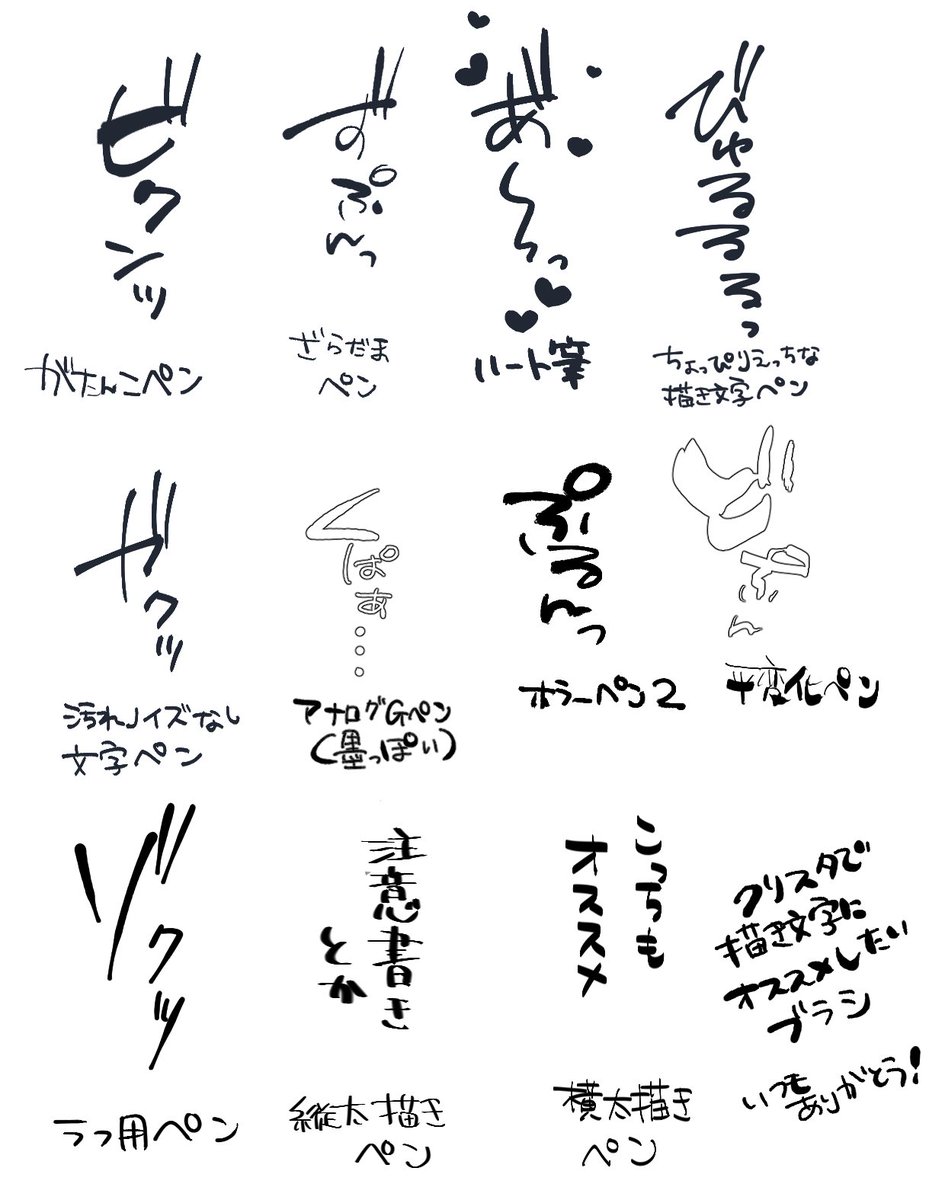 ビクンッ
がたんこペン
ずぷんっ
ざらだま
ペン
あ゛〜〜っ
ハート筆
びゅるるるっ
ちょっぴりえっちな
描き文字ペン
ガクッ
汚れノイズなし
文字ペン
くぱぁ...
アナログGペン
(墨っぽい)
ぷるんっ
ホラーペン2
ん
変化ペン
ゾクッ
ラフ用ペン
注意書き
とか
縦太描き
ペン
こっちも
オススメ
横太描き
ペン
クリスタで
描き文字に
オススメしたい
ブラシ
いつも
ありがとう!